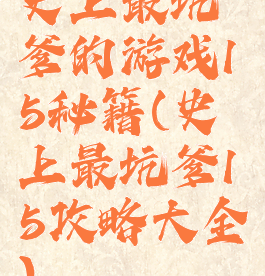 史上最坑
爹的游戏1
5秘籍(史
上最坑爹1
5攻略大全
)